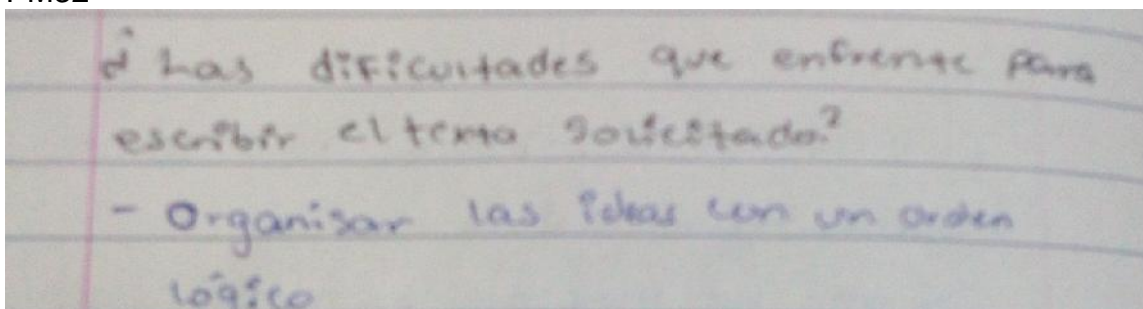 ¿ Las dificultades que enfrente para
escribir el tema solicitado?
- Organisar las ideas con un orden
lógico